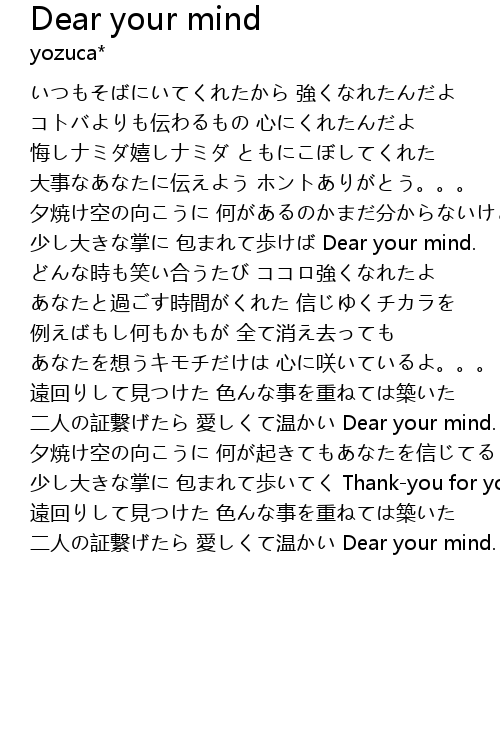 Dear your mind
yozuca*
いつもそばにいてくれたから 強くなれたんだよ
コトバよりも伝わるもの 心にくれたんだよ
悔しナミダ嬉しナミダ ともにこぼしてくれた
大事なあなたに伝えよう ホントありがとう。。。
夕焼け空の向こうに 何があるのかまだ分からないけ
少し大きな掌に 包まれて歩けば Dear your mind.
どんな時も笑い合うたび ココロ強くなれたよ
あなたと過ごす時間がくれた 信じゆくチカラを
例えばもし何もかもが 全て消え去っても
あなたを想うキモチだけは 心に咲いているよ。。。
遠回りして見つけた 色んな事を重ねては築いた
二人の証繋げたら 愛しくて温かい Dear your mind.
夕焼け空の向こうに 何が起きてもあなたを信じてる
少し大きな掌に 包まれて歩いてく Thank-you for yo
遠回りして見つけた 色んな事を重ねては築いた
二人の証繋げたら 愛しくて温かい Dear your mind.